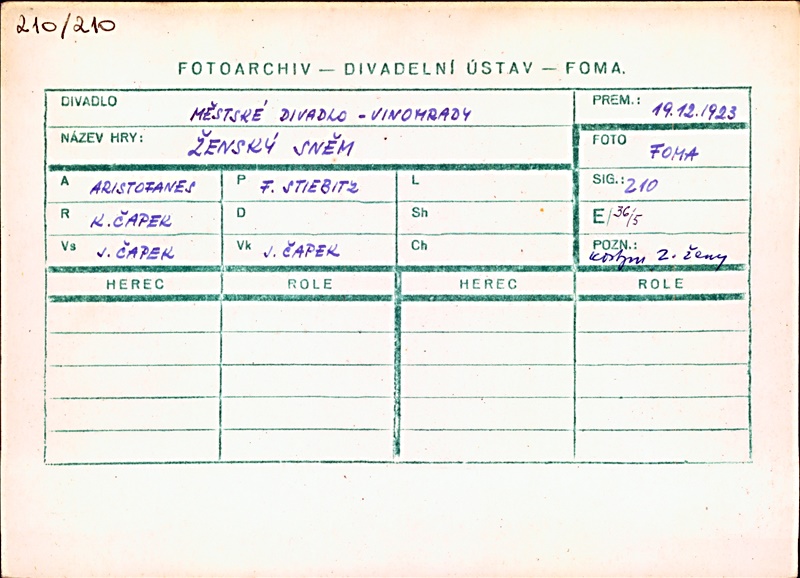 210/210
FOTOARCHIV — DIVADELNÍ ÚSTAV — FOMA.
DIVADLO MĚSTSKÉ DIVADLO - VINOHRADY PREM.: 19.12.1923
NÁZEV HRY: ŽENSKÝ SNĚM FOTO FOMA
A ARISTOFANES P F. STIEBITZ L SIG.: 210
R K. ČAPEK D Sh E/36/5
Vs J. ČAPEK Vk J. ČAPEK Ch POZN.: kostym 2. ženy
HEREC ROLE HEREC ROLE